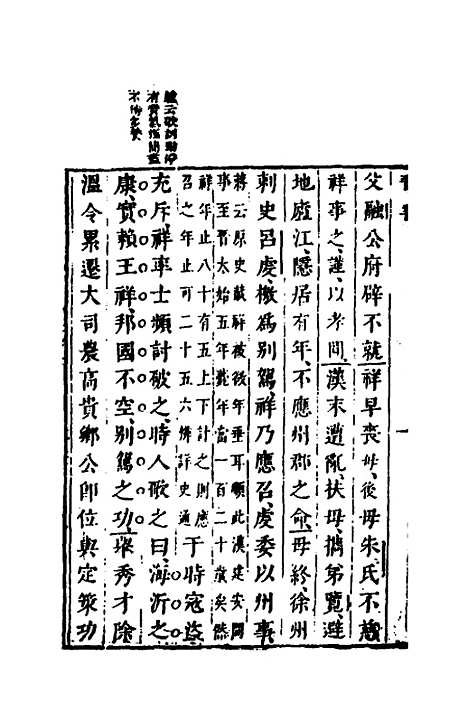 父融公府辟不就祥早喪母後母朱氏不慈
祥事之謹以孝聞漢末遭亂扶母攜弟覽避
地廬江隱居有年不應州郡之命母終徐州
刺史呂虔檄爲別駕祥乃應召虔委以州事
蔣云原史載祥被後年垂耳順此漢建安間
事至晉太始五年薨年當一百二十歲矣然
祥年止八十有五上下計之則應
召之年止可二十五六耳詳史通
于時寇盜
充斥祥率士頻討破之時人歌之曰海沂之
康實賴王祥邦國不空別駕之功舉秀才除
溫令累遷大司農高貴鄉公卽位與定策功